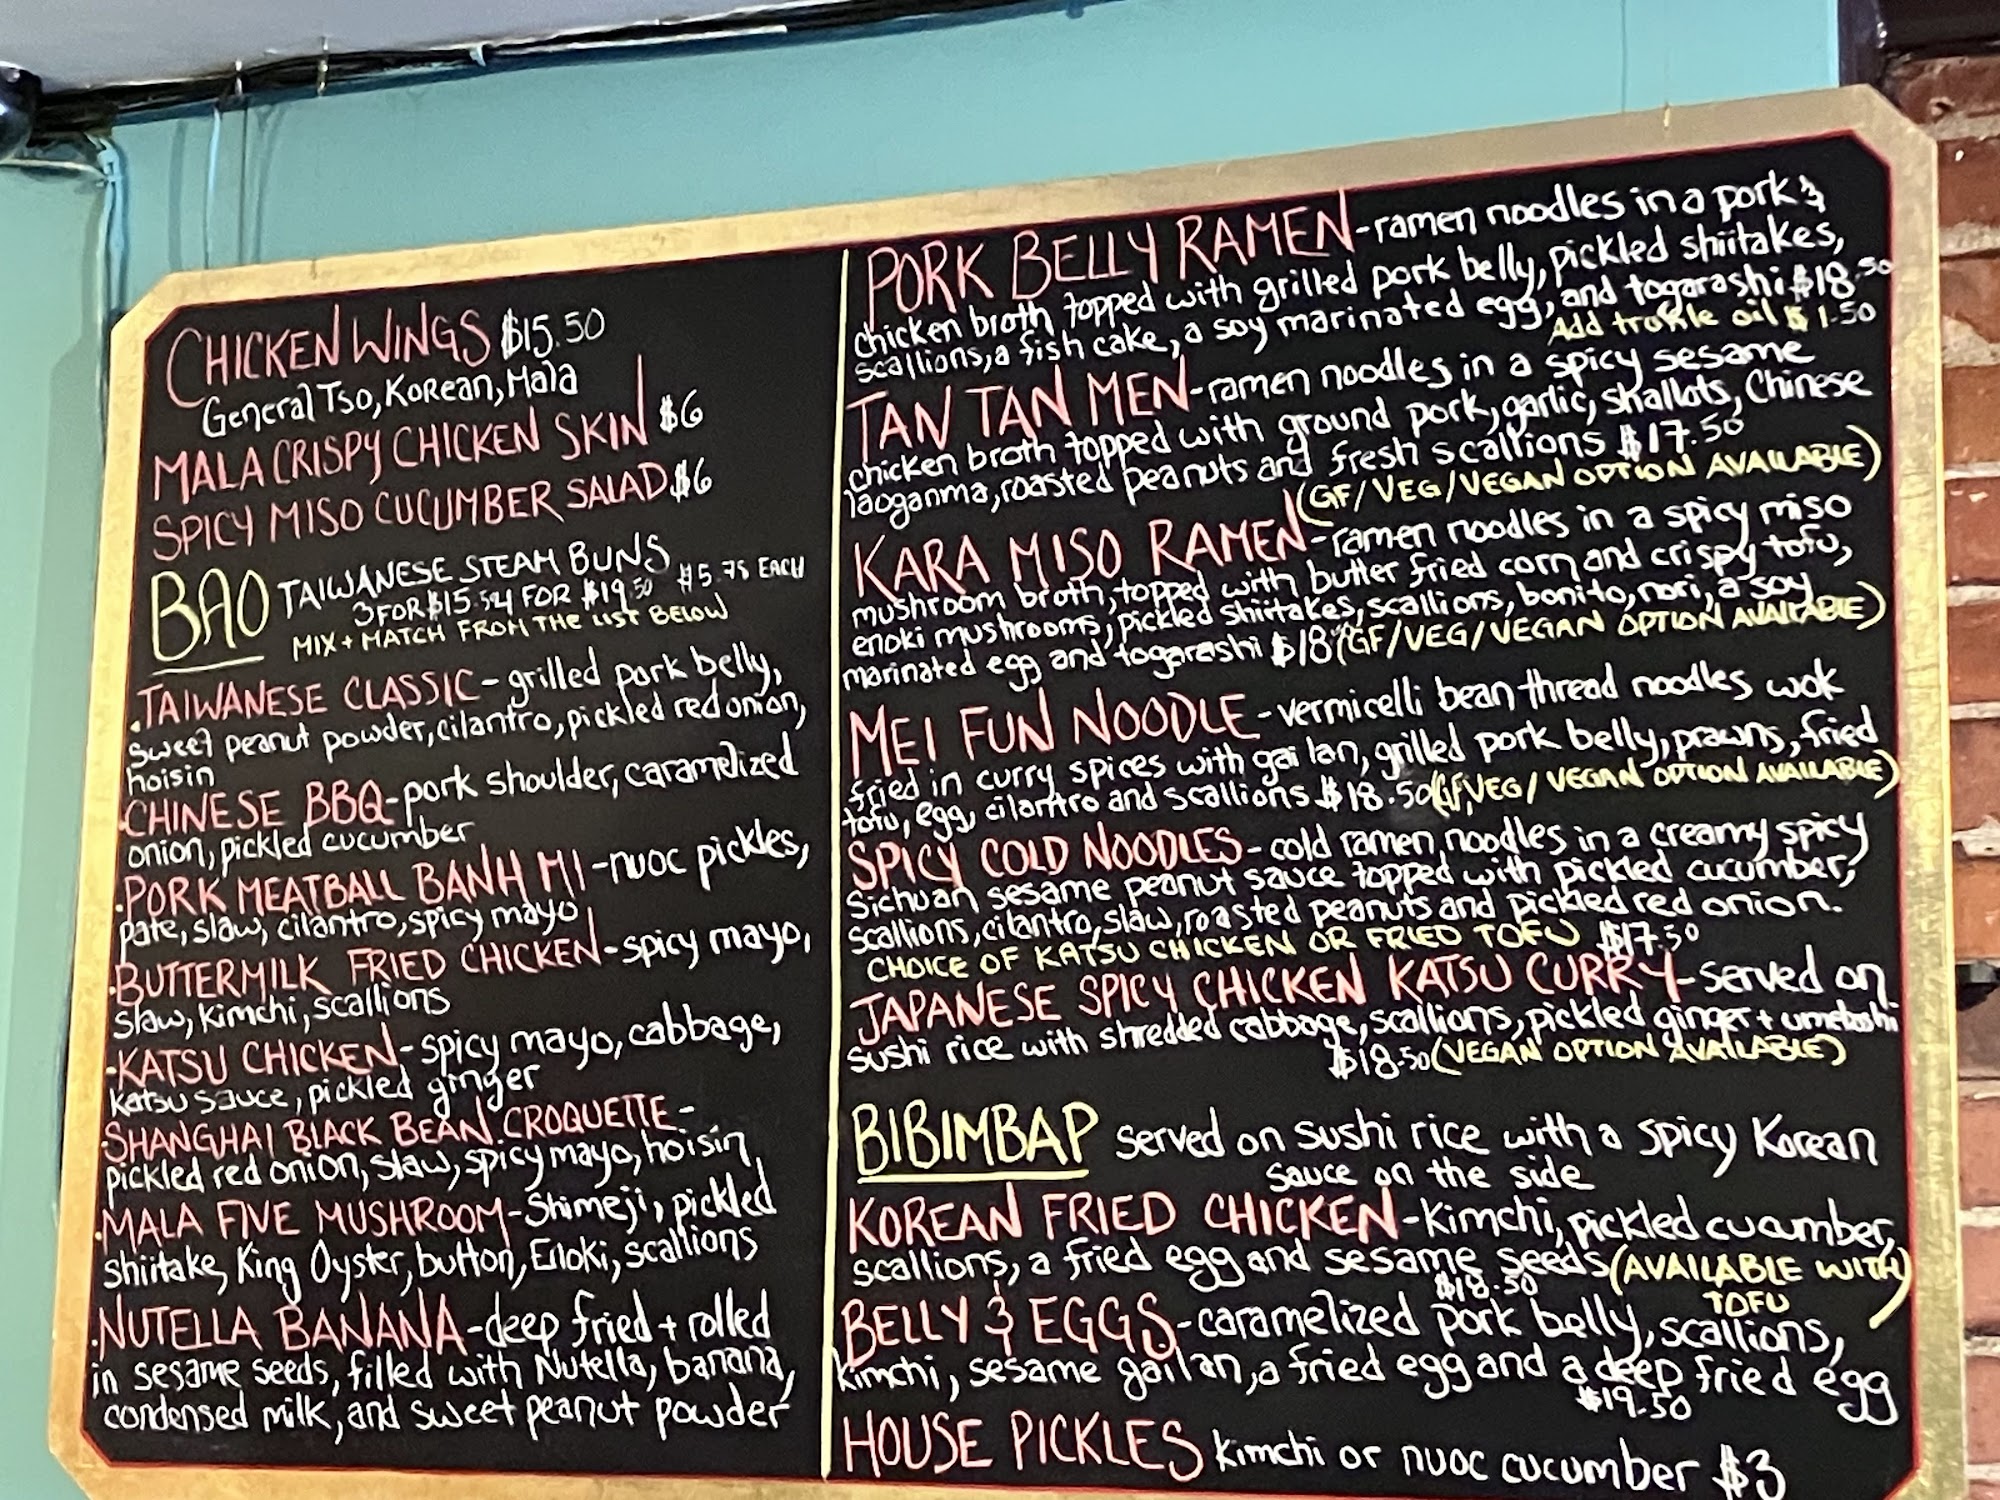 CHICKEN WINGS $15.50
General Tso, Korean, Mala
MALA CRISPY CHICKEN SKIN $6
SPICY MISO CUCUMBER SALAD $6
BAO TAIWANESE STEAM BUNS $5.75 EACH
3 FOR $15.50 4 FOR $19.50
MIX + MATCH FROM THE LIST BELOW
·TAIWANESE CLASSIC - grilled pork belly,
sweet peanut powder, cilantro, pickled red onion,
hoisin
·CHINESE BBQ - pork shoulder, caramelized
onion, pickled cucumber
·PORK MEATBALL BANH MI - nuoc pickles,
pate, slaw, cilantro, spicy mayo
·BUTTERMILK FRIED CHICKEN - spicy mayo,
slaw, kimchi, scallions
·KATSU CHICKEN - spicy mayo, cabbage,
katsu sauce, pickled ginger
·SHANGHAI BLACK BEAN CROQUETTE -
pickled red onion, slaw, spicy mayo, hoisin
·MALA FIVE MUSHROOM - Shimeji, pickled
shiitake, King Oyster, button, Enoki, scallions
·NUTELLA BANANA - deep fried + rolled
in sesame seeds, filled with Nutella, banana,
condensed milk, and sweet peanut powder
PORK BELLY RAMEN - ramen noodles in a pork &
chicken broth topped with grilled pork belly, pickled shiitakes,
scallions, a fish cake, a soy marinated egg, and togarashi $18.50
Add truffle oil $1.50
TAN TAN MEN - ramen noodles in a spicy sesame
chicken broth topped with ground pork, garlic, shallots, Chinese
laoganma, roasted peanuts and fresh scallions $17.50
(GF/VEG/VEGAN OPTION AVAILABLE)
KARA MISO RAMEN - ramen noodles in a spicy miso
mushroom broth, topped with butter fried corn and crispy tofu,
enoki mushrooms, pickled shiitakes, scallions, bonito, nori, a soy
marinated egg and togarashi $18 (GF/VEG/VEGAN OPTION AVAILABLE)
MEI FUN NOODLE - vermicelli bean thread noodles wok
fried in curry spices with gai lan, grilled pork belly, prawns, fried
tofu, egg, cilantro and scallions $18.50 (GF/VEG/VEGAN OPTION AVAILABLE)
SPICY COLD NOODLES - cold ramen noodles in a creamy spicy
Sichuan sesame peanut sauce topped with pickled cucumber,
scallions, cilantro, slaw, roasted peanuts and pickled red onion.
CHOICE OF KATSU CHICKEN OR FRIED TOFU $17.50
JAPANESE SPICY CHICKEN KATSU CURRY - served on
sushi rice with shredded cabbage, scallions, pickled ginger + umeboshi
$18.50 (VEGAN OPTION AVAILABLE)
BIBIMBAP served on sushi rice with a spicy Korean
sauce on the side
KOREAN FRIED CHICKEN - Kimchi, pickled cucumber,
scallions, a fried egg and sesame seeds (AVAILABLE WITH
$18.50 TOFU)
BELLY & EGGS - caramelized pork belly, scallions,
kimchi, sesame gailan, a fried egg and a deep fried egg
$19.50
HOUSE PICKLES kimchi or nuoc cucumber $3